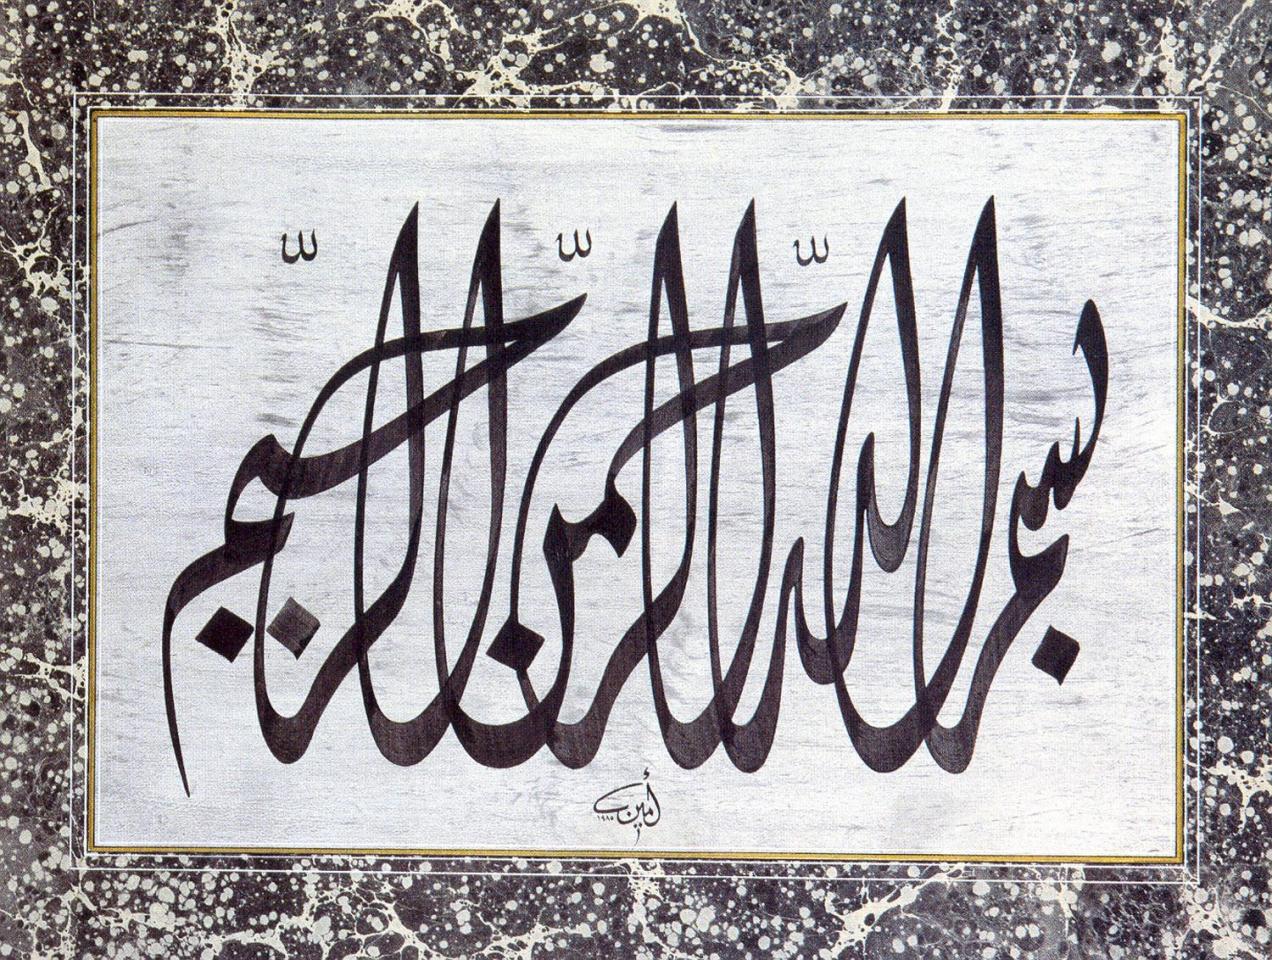 بسم الله الرحمن الرحيم
أمين
١٩٨٥